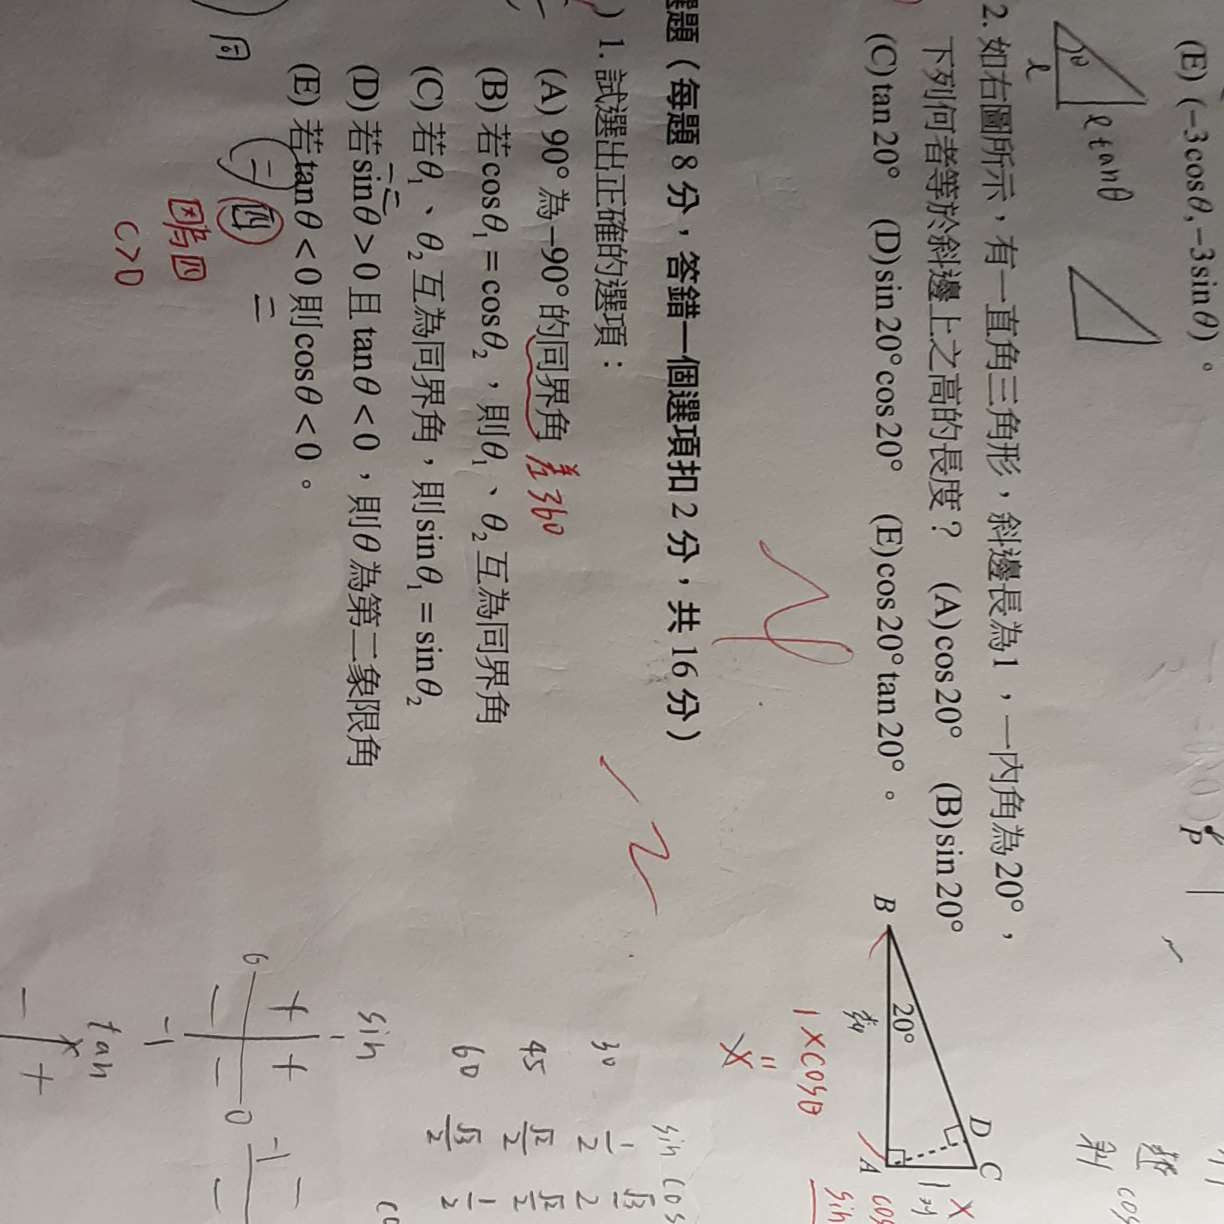 (E) (−3cosθ, −3sinθ)。
P
θ
l
l tanθ
2. 如右圖所示，有一直角三角形，斜邊長為1，一內角為20°，
下列何者等於斜邊上之高的長度？ (A)cos20° (B)sin20°
(C)tan20° (D)sin20°cos20° (E)cos20°tan20°。
B
20°
D
C
A
1×cosθ
選題（每題 8 分，答錯一個選項扣 2 分，共 16 分）
) 1. 試選出正確的選項：
(A) 90°為−90°的同界角 差360
(B) 若cosθ1 = cosθ2，則θ1、θ2互為同界角
(C) 若θ1、θ2互為同界角，則sinθ1 = sinθ2
一二
(D) 若sinθ > 0且tanθ < 0，則θ為第二象限角
(E) 若tanθ < 0則cosθ < 0。
同
二
四
二
因為四
C>0
sin cos
30 1/2 √3/2
45 √2/2 √2/2
60 √3/2 1/2
sin
1
+ +
0
− −
−1
tan
− +